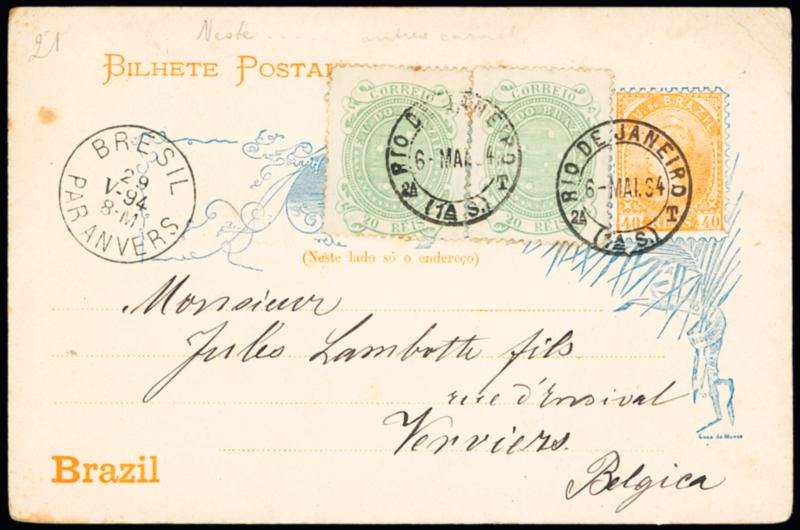 21 Neste
BILHETE POSTAL
CORREIO
E. U. DO BRAZIL
20 REIS
CORREIO
DO BRAZIL
20 REIS
BRAZIL
40 REIS 40
RIO DE JANEIRO
6-MAI.94
2A T
(1A S.)
RIO DE JANEIRO
6-MAI.94
2A T
(1A S.)
BRÉSIL
29
V-94
8-M
PAR ANVERS
(Neste lado só o endereço)
Monsieur
Jules Lambotte fils
rue d'Ensival
Verviers.
Belgica
Casa da Moeda
Brazil